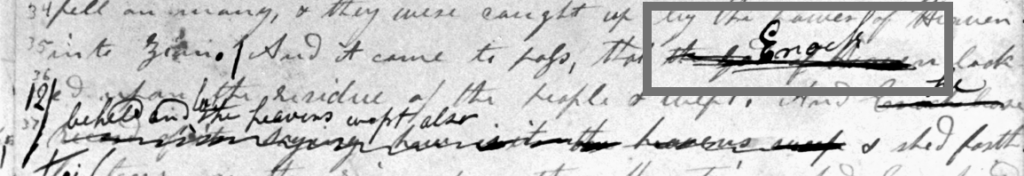 fell on many, & they were caught up by the powers of Heaven
Enoch
35 into Zion. And it came to pass, that the God of Heaven look
36
12 ed upon the residue of the people & wept. And
beheld and lo the heavens wept also
37 saying how is it the heavens weep & shed forth